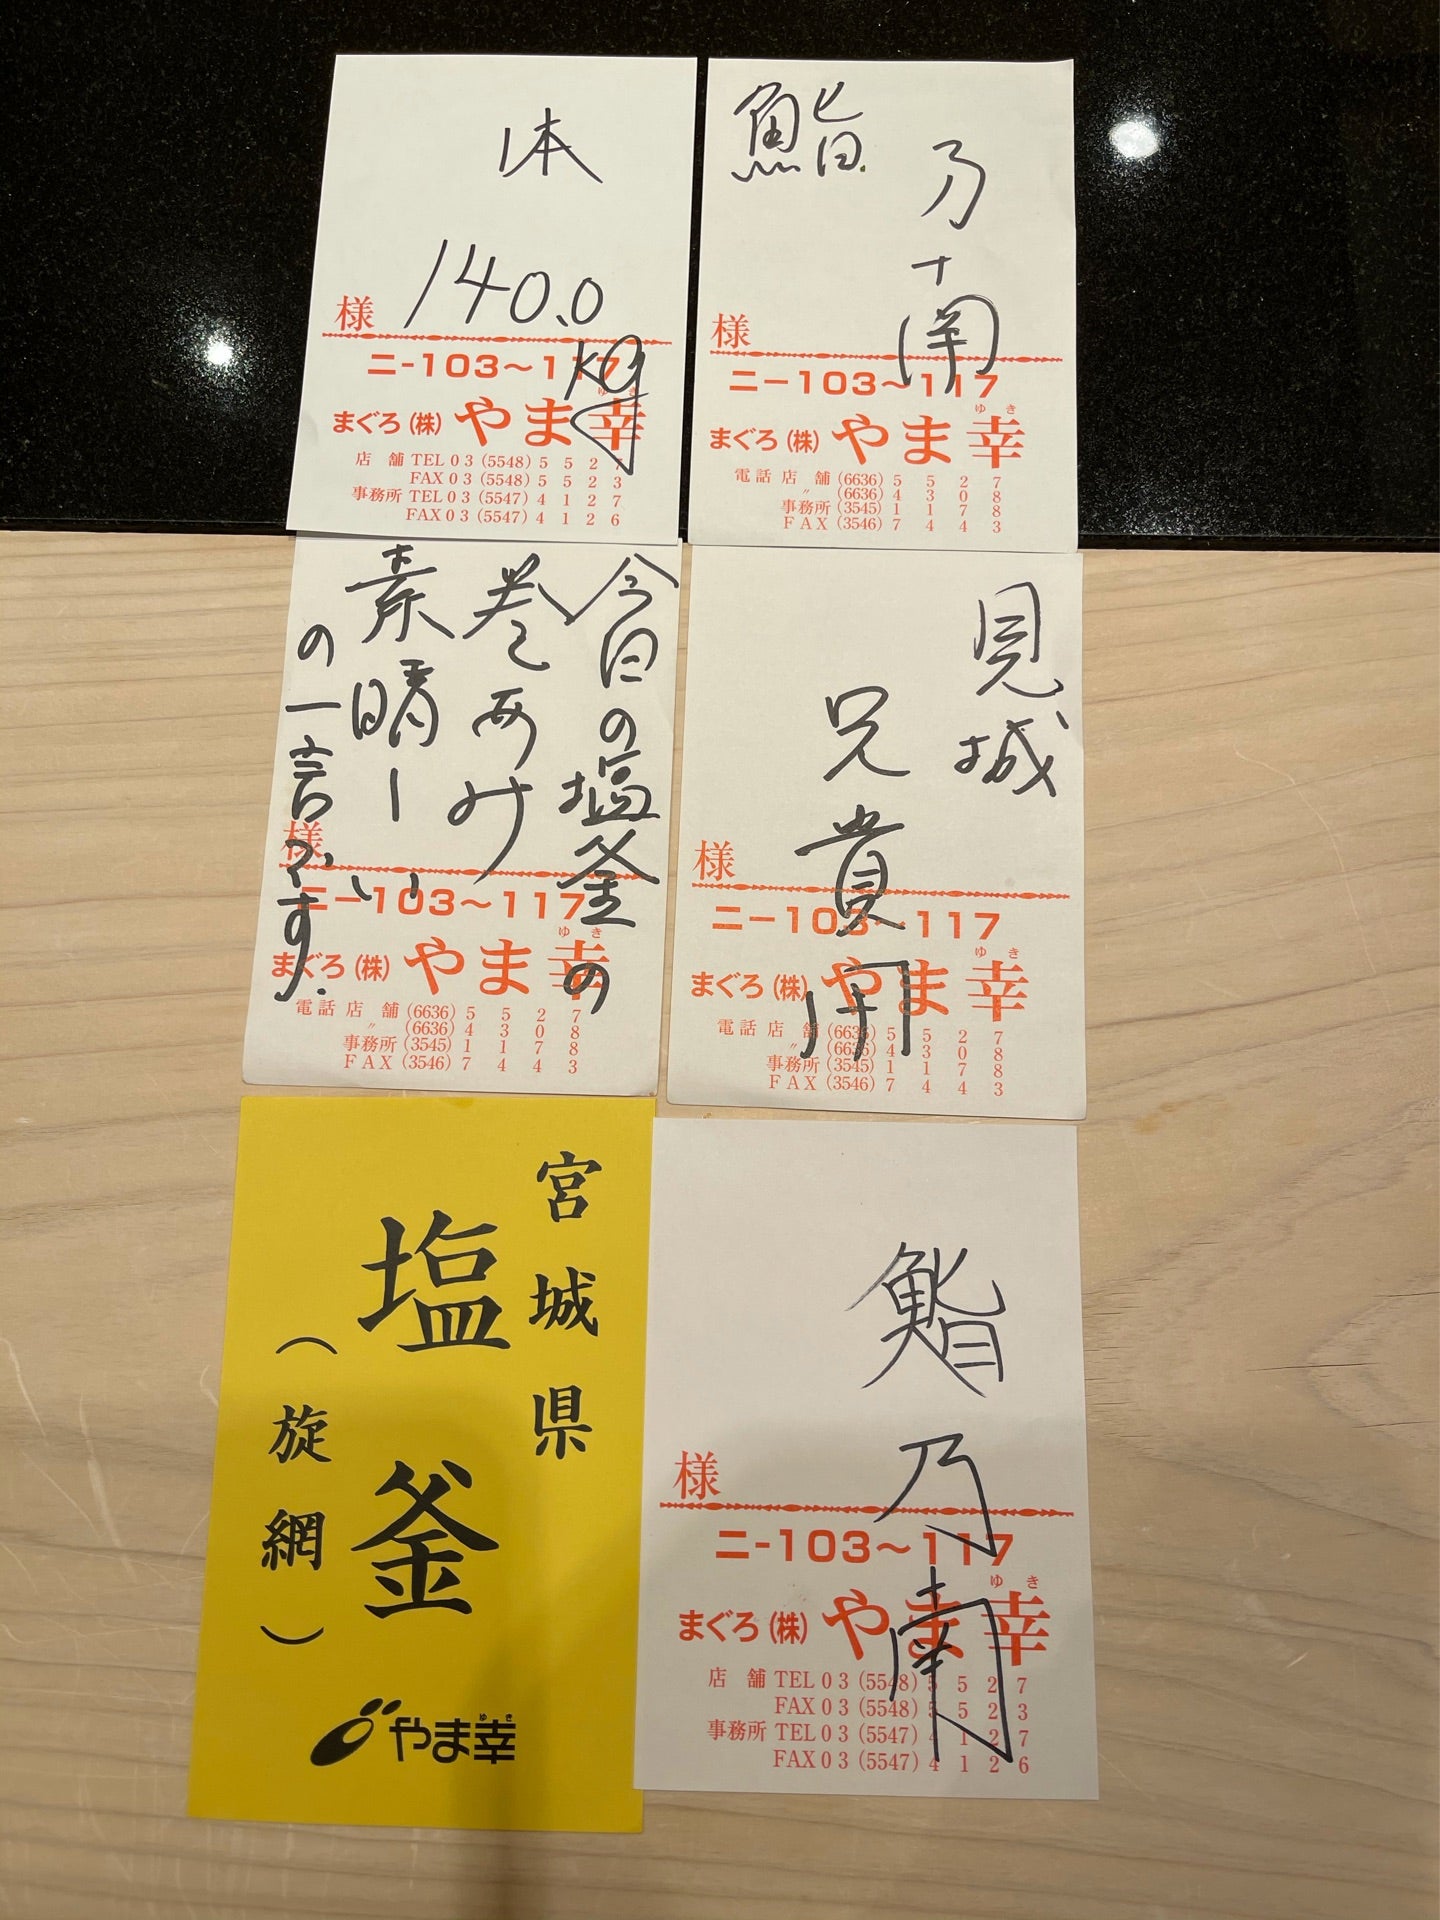 本
140.0
kg
様
ニ-103〜117
まぐろ(株)やま幸
ゆき
店舗 TEL03(5548)5527
FAX03(5548)5523
事務所 TEL03(5547)4127
FAX03(5547)4126
鮨
乃
南
様
ニ-103〜117
まぐろ(株)やま幸
ゆき
電話店舗(6636)5527
〃(6636)4308
事務所(3545)1178
FAX(3546)7443
今日の塩釜の
巻あみ
素晴しい
の一言です.
様
ニ-103〜117
まぐろ(株)やま幸
ゆき
電話店舗(6636)5527
〃(6636)4308
事務所(3545)1178
FAX(3546)7443
見城
兄貴用
様
ニ-103〜117
まぐろ(株)やま幸
ゆき
電話店舗(6636)5527
〃(6636)4308
事務所(3545)1178
FAX(3546)7443
宮城県
塩釜
(旋網)
やま幸
ゆき
鮨
乃
南
様
ニ-103〜117
まぐろ(株)やま幸
ゆき
店舗 TEL03(5548)5527
FAX03(5548)5523
事務所 TEL03(5547)4127
FAX03(5547)4126